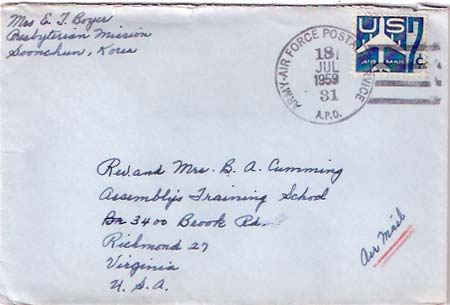 Mrs E. T. Boyer
Presbyterian Mission
Soonchun, Korea
ARMY-AIR FORCE POSTAL SERVICE
18
JUL
1959
31
A.P.O.
US
7c
AIR MAIL
Rev. and Mrs. B. A. Cumming
Assembly's Training School
3400 Brook Rd.
Richmond 27
Virginia
U. S. A.
Air Mail